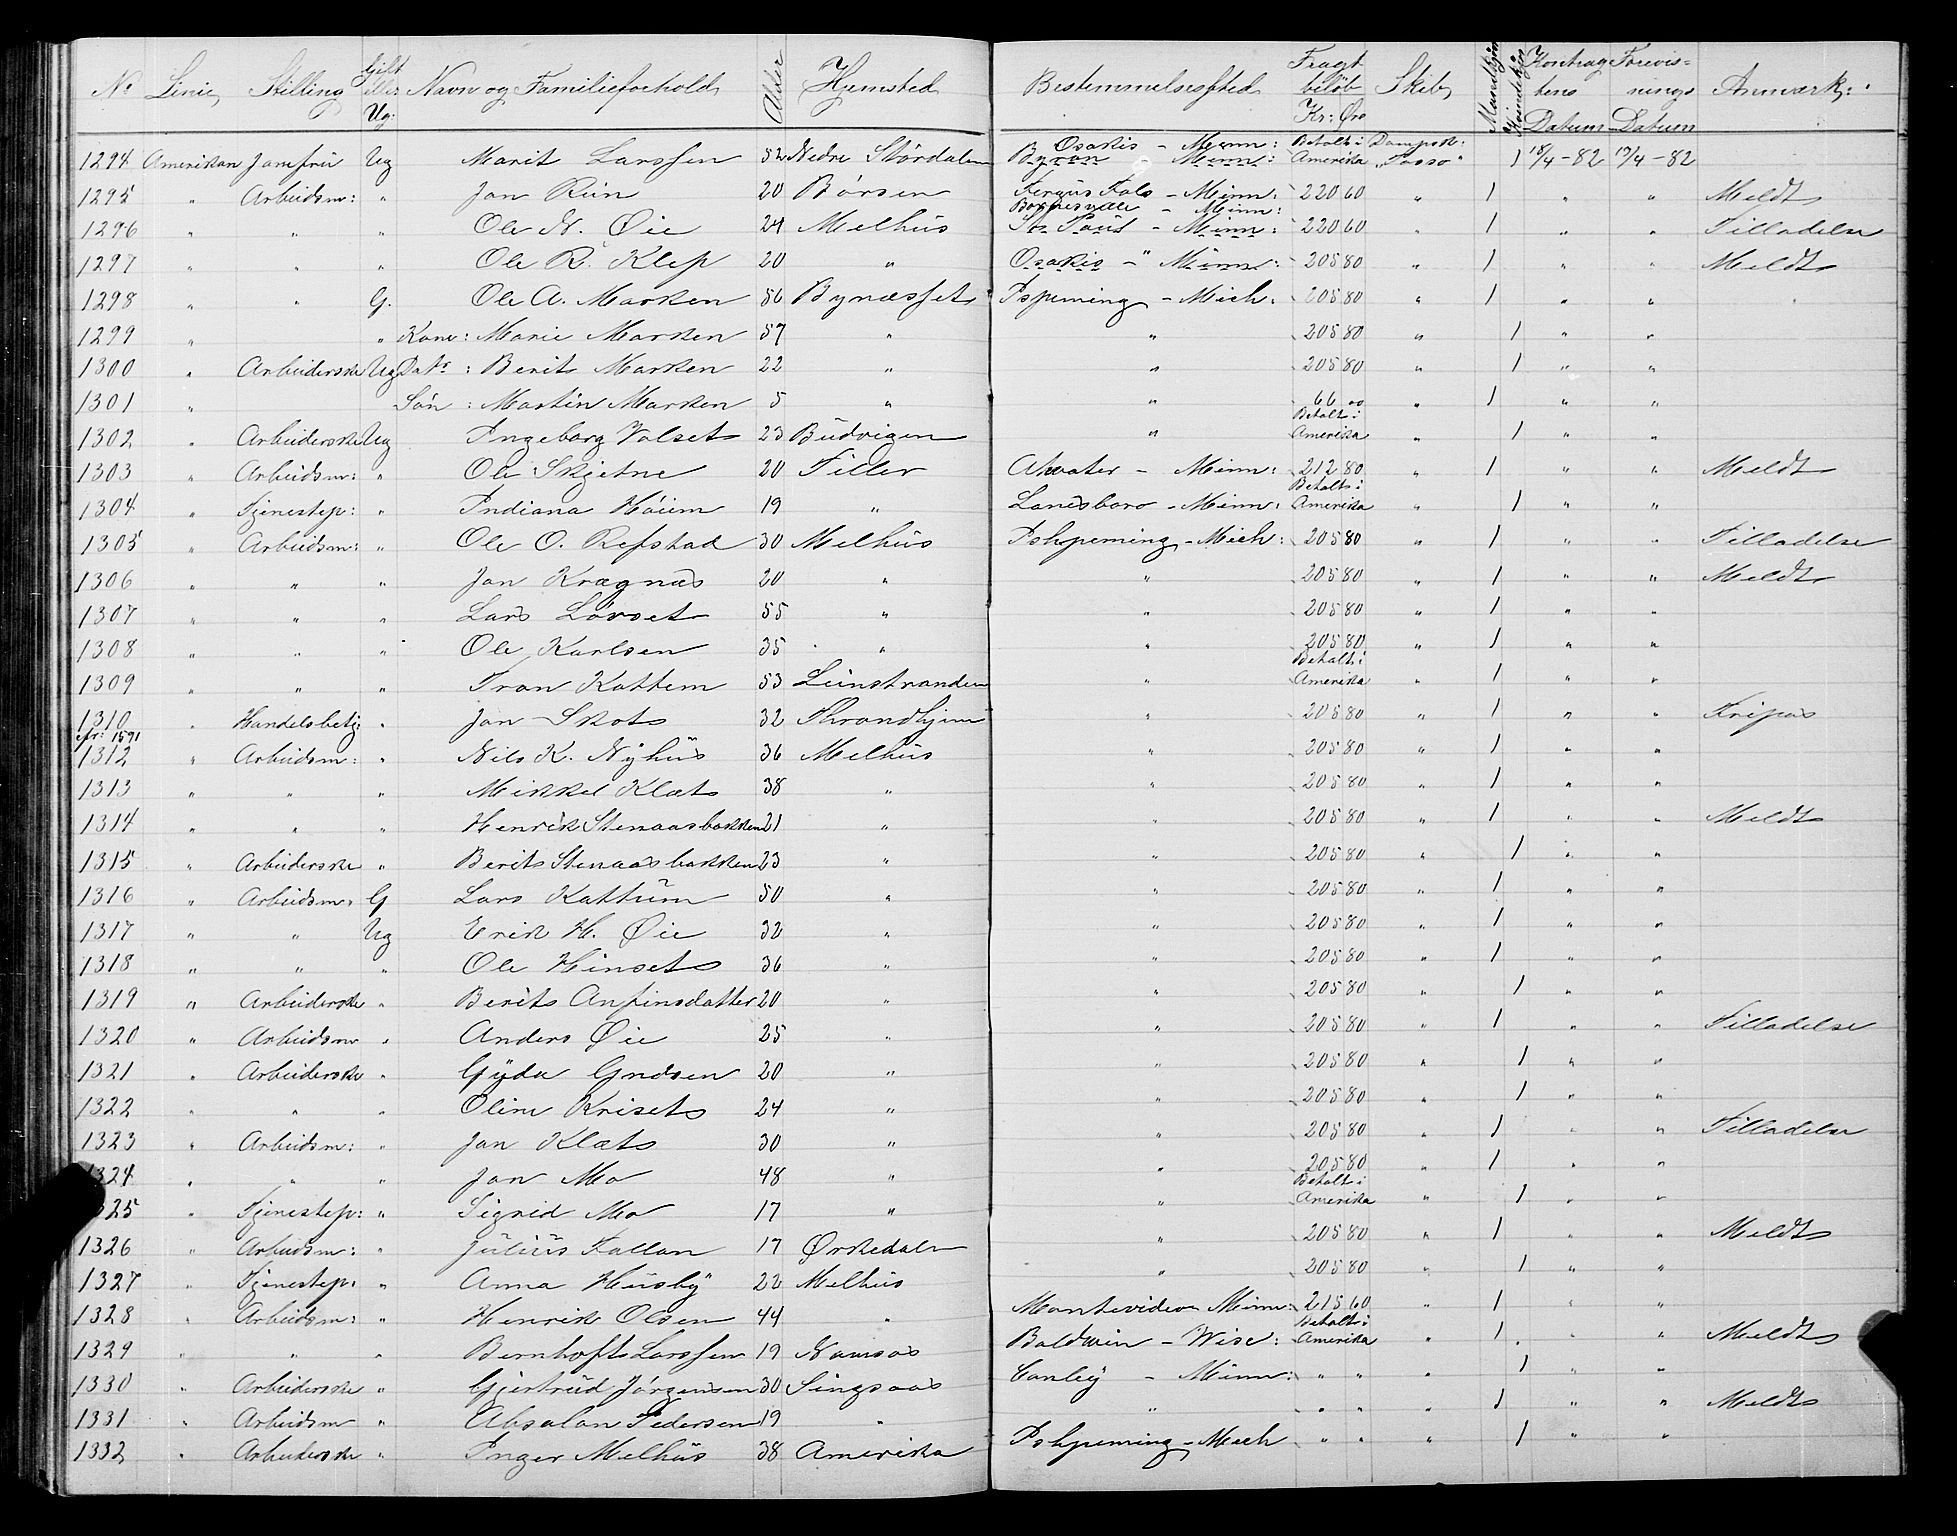 No Linie Stilling Gift eller Ug: Navn og Familieforhold Alder Hjemsted Bestemmelsessted Fragt beløb Kr: Øre Skib Mandkjøn Kvindekjøn Kontragtens Datum Forevisnings Datum Anmærk:
1294 Amerikan Jomfrü Ug Marit Larssen 52 Nedre Stördalen Osakis - Minn: Byron Minn: Betalt i Amerika Dampsk: "Tasso" 1 18/4 - 82 19/4 - 82
1295 " Arbeidsm: " Jon Rün 20 Börsen Fergus Fals - Minn: 220 60 " 1 " " Meldt
1296 " " " Ole N. Øie 24 Melhüs St. Paul - Minn: 220 60 " 1 " " Tilladelse
1297 " " " Ole R. Klep 20 " Osakis - Minn: 205 80 " 1 " " Meldt
1298 " " G. Ole A. Marken 56 Bynæsset Ispeming - Mich: 205 80 " 1 " " "
1299 " " Kone: Marie Marken 57 " " 205 80 " 1 " "
1300 " Arbeiderske Ug Datr: Berit Marken 22 " " 205 80 " 1 " "
1301 " Sön: Martin Marken 5 " " 66 00 " 1 " "
1302 " Arbeiderske Ug Ingeborg Volset 23 Büdvigen " Betalt i Amerika " 1 " "
1303 " Arbeidsm: " Ole Skjetne 20 Tiller Atwater - Minn: 212 80 " 1 " " Meldt
1304 " Tjenestep: " Indiana Höiem 19 " Lanesboro - Minn: Betalt i Amerika " 1 " "
1305 " Arbeidsm: " Ole O. Refstad 30 Melhüs Ishpeming - Mich: 205 80 " 1 " " Tilladelse
1306 " " " Jon Krægnæs 20 " " 205 80 " 1 " " Meldt
1307 " " " Lars Lövset 55 " " 205 80 " 1 " "
1308 " " " Ole Karlsen 35 " " 205 80 " 1 " "
1309 " " " Tron Kattem 53 Leinstranden " Betalt i Amerika " 1 " "
1310 " Handelsbetj " Jon Skot 32 Throndhjem " 205 80 " 1 " " Fripas
1312 " Arbeidsm: " Nils K. Nyhüs 36 Melhüs " 205 80 " 1 " "
1313 " " " Mikkel Klæt 38 " " 205 80 " 1 " "
1314 " " " Henrik Stenaasbakken 21 " " 205 80 " 1 " " Meldt
1315 " Arbeiderske " Berit Stenaasbakken 23 " " 205 80 " 1 " "
1316 " Arbeidsm. G Lars Kattüm 50 " " 205 80 " 1 " "
1317 " " Ug Erik H. Øie 32 " " 205 80 " 1 " "
1318 " " " Ole Hinset 36 " " 205 80 " 1 " "
1319 " Arbeiderske " Berit Anfinsdatter 20 " " 205 80 " 1 " "
1320 " Arbeidsm " Anders Øie 25 " " 205 80 " 1 " " Tilladelse
1321 " Arbeiderske " Gyda 20 " " 205 80 " 1 " "
1322 " " " Oline Kriset 24 " " 205 80 " 1 " "
1323 " Arbeidsm: " Jon Klæt 30 " " 205 80 " 1 " " Tilladelse
1324 " " " Jon Mo 48 " " 205 80 " 1 " "
1325 " Tjenestep: " Sigrid Mo 17 " " Betalt i Amerika " 1 " "
1326 " Arbeidsm: " Jüliüs Fallan 17 Ørkedalen " 205 80 " 1 " " Meldt
1327 " Tjenestep: " Anna Hüsby 22 Melhüs " 205 80 " 1 " "
1328 " Arbeidsm: " Henrik Olsen 44 " Montevideo Minn: 215 60 " 1 " "
1329 " " " Bernhoft Larssen 19 Namsos Baldwin - Wisc: Betalt i Amerika " 1 " " Meldt
1330 " Arbeiderske " Gjertrüd Jörgensen 30 Singsaas Canby - Minn: " " " 1 " "
1331 " Arbeidsm " Absalon Pedersen 19 " " " " " 1 " " Meldt
1332 " Arbeiderske " Inger Melhüs 38 Amerika Ishpeming - Mich " " " 1 " "